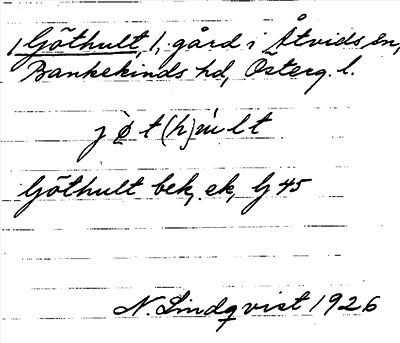 1 Göthult, 1, gård i Åtvids sn,
Bankekinds hd, Österg. l.
jø̀t(h)ùlt
Göthult bek. ek, G 45
N. Lindqvist 1926